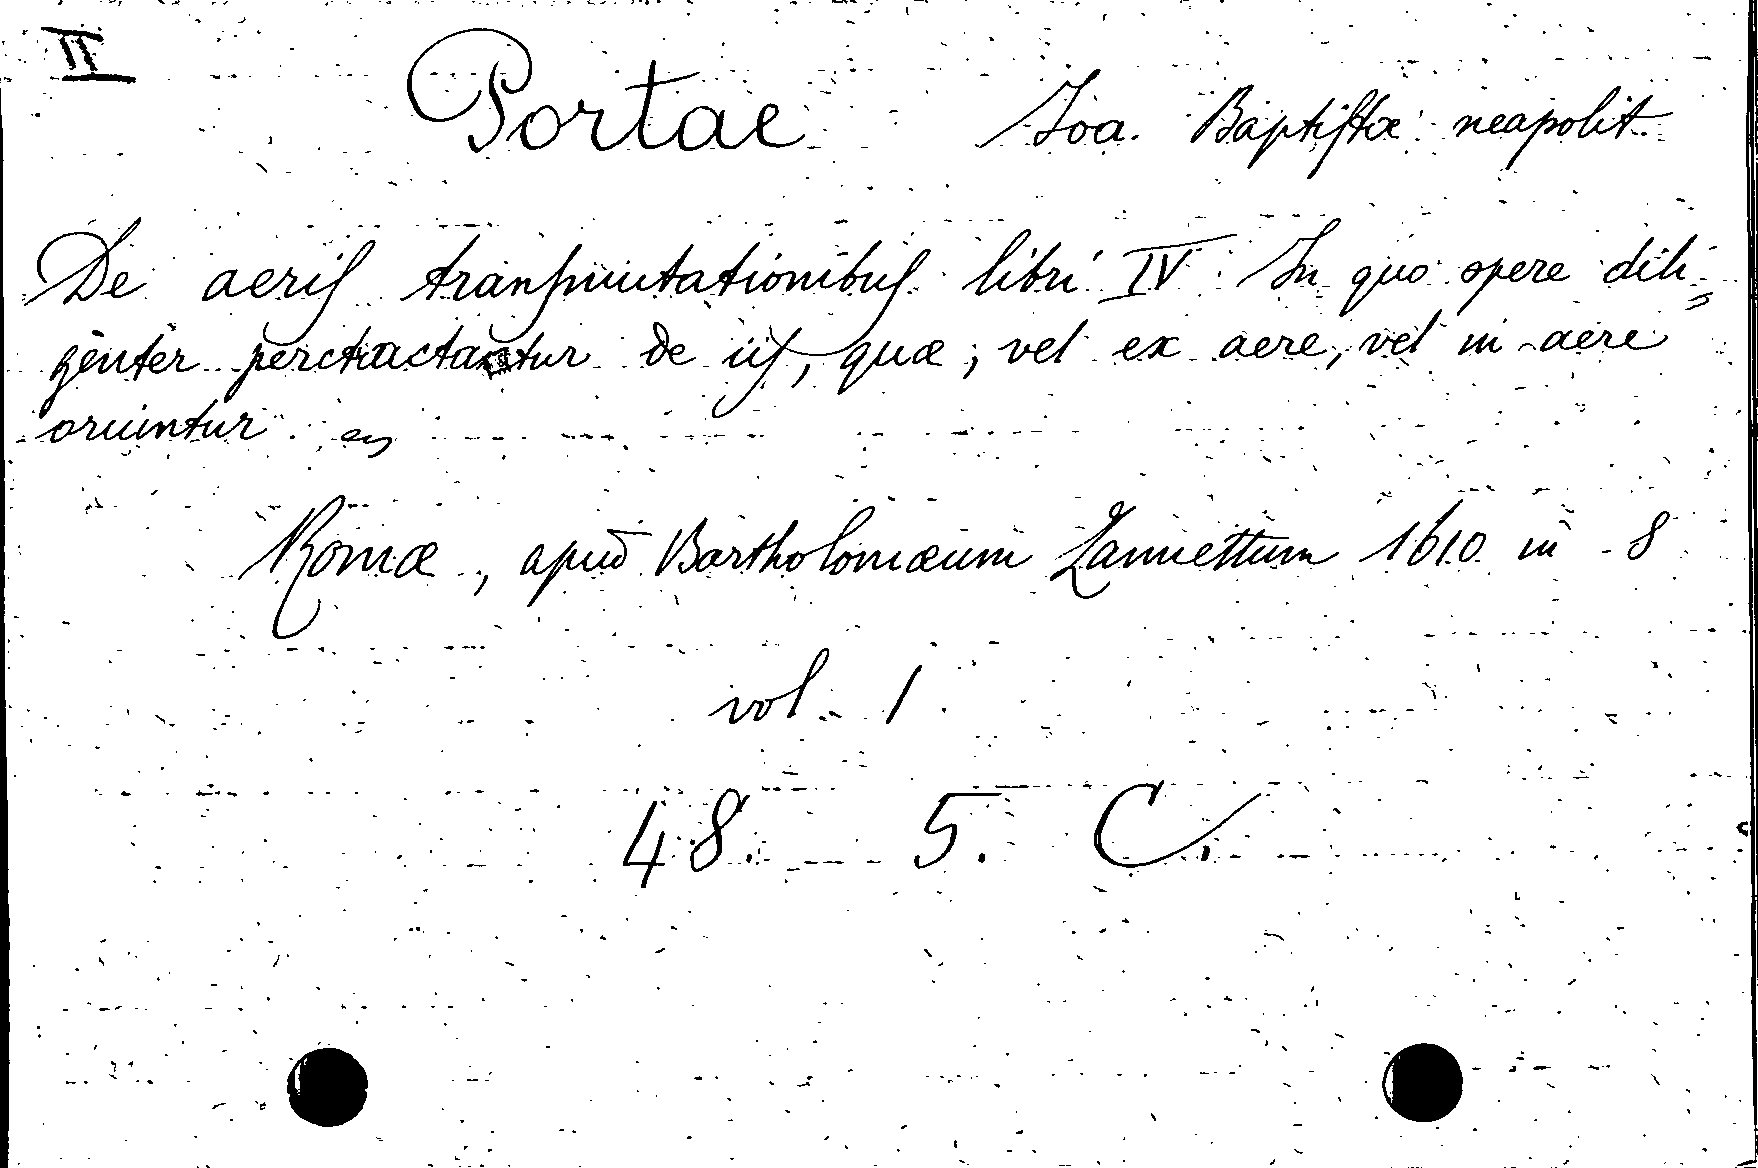 II
Portae Ioa. Baptiſtæ neapolit.
De aeriſ tranſmutationibuſ libri IV. In quo opere dili=
genter perctractantur de iiſ, quæ, vel ex aere, vel in aere
oriuntur.
Romæ, apud Bartholomæum Zannettum 1610 in 8
vol. 1.
48. 5. C.